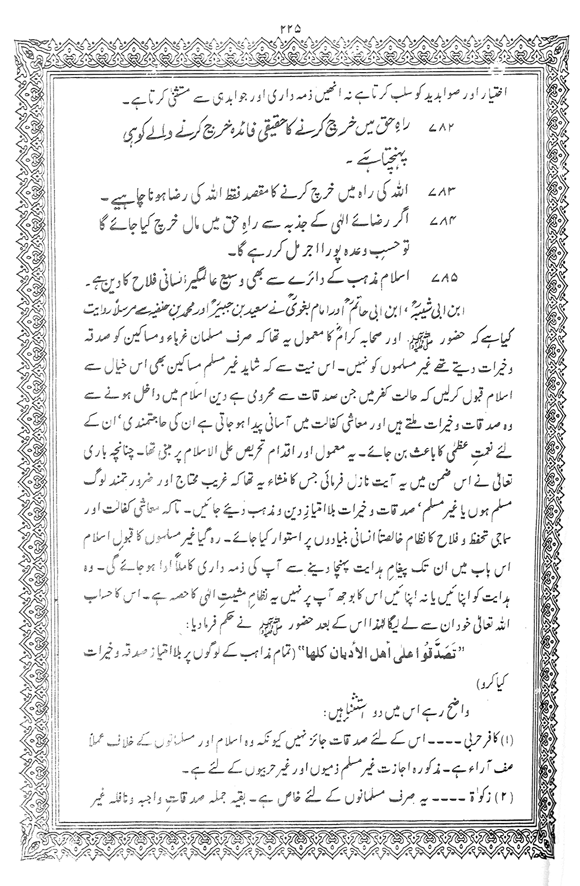 ۲۲۵
اختیار اور صوابدید کو سلب کرتا ہے نہ انھیں ذمہ داری اور جوابدہی سے مستثنیٰ کرتا ہے۔
۷۸۲ راہِ حق میں خرچ کرنے کا حقیقی فائدہ خرچ کرنے والے کو ہی
پہنچتا ہے۔
۷۸۳ اللہ کی راہ میں خرچ کرنے کا مقصد فقط اللہ کی رضا ہونا چاہیے۔
۷۸۴ اگر رضائے الٰہی کے جذبہ سے راہِ حق میں مال خرچ کیا جائے گا
تو حسبِ وعدہ پورا اجر مل کر رہے گا۔
۷۸۵ اسلام مذہب کے دائرے سے بھی وسیع عالمگیر انسانی فلاح کا دین ہے۔
ابن ابی شیبہؒ، ابن ابی حاتمؒ اور امام بغویؒ نے سعید بن جبیرؓ اور محمد بن حنفیہ سے مرسلاً روایت
کیا ہے کہ حضور ﷺ اور صحابہ کرامؓ کا معمول یہ تھا کہ صرف مسلمان غرباء و مساکین کو صدقہ
و خیرات دیتے تھے غیر مسلموں کو نہیں۔ اس نیت سے کہ شاید غیر مسلم مساکین بھی اس خیال سے
اسلام قبول کرلیں کہ حالت کفر میں جن صدقات سے محرومی ہے دین اسلام میں داخل ہونے سے
وہ صدقات و خیرات ملتے ہیں اور معاشی کفالت میں آسانی پیدا ہو جاتی ہے ان کی حاجتمندی، ان کے
لئے نعمتِ عظمیٰ کا باعث بن جائے۔ یہ معمول اور اقدام تحریص علی الاسلام پر مبنی تھا۔ چنانچہ باری
تعالیٰ نے اس ضمن میں یہ آیت نازل فرمائی جس کا منشاء یہ تھا کہ غریب محتاج اور ضرورتمند لوگ
مسلم ہوں یا غیر مسلم، صدقات و خیرات بلاامتیازِ دین و مذہب دیئے جائیں۔ تاکہ معاشی کفالت اور
سماجی تحفظ و فلاح کا نظام خالصتاً انسانی بنیادوں پر استوار کیا جائے۔ رہ گیا غیر مسلموں کا قبولِ اسلام
اس باب میں ان تک پیغامِ ہدایت پہنچا دینے سے آپ کی ذمہ داری کاملاً ادا ہو جائے گی۔ وہ
ہدایت کو اپنائیں یا نہ اپنائیں اس کا بوجھ آپ پر نہیں یہ نظامِ مشیتِ الٰہی کا حصہ ہے۔ اس کا حساب
اللہ تعالیٰ خود ان سے لے لیگا لہٰذا اس کے بعد حضور ﷺ نے حکم فرما دیا:
"تَصَدَّقُوا على أهل الأديان كلها" (تمام مذاہب کے لوگوں پر بلاامتیاز صدقہ و خیرات
کیا کرو)
واضح رہے اس میں دو استثناء ہیں:
(۱) کافر حربی ---- اس کے لئے صدقات جائز نہیں کیونکہ وہ اسلام اور مسلمانوں کے خلاف عملاً
صف آراء ہے۔ مذکورہ اجازت غیر مسلم ذمیوں اور غیر حربیوں کے لئے ہے۔
(۲) زکوٰۃ ---- یہ صرف مسلمانوں کے لئے خاص ہے۔ بقیہ جملہ صدقاتِ واجبہ و نافلہ غیر